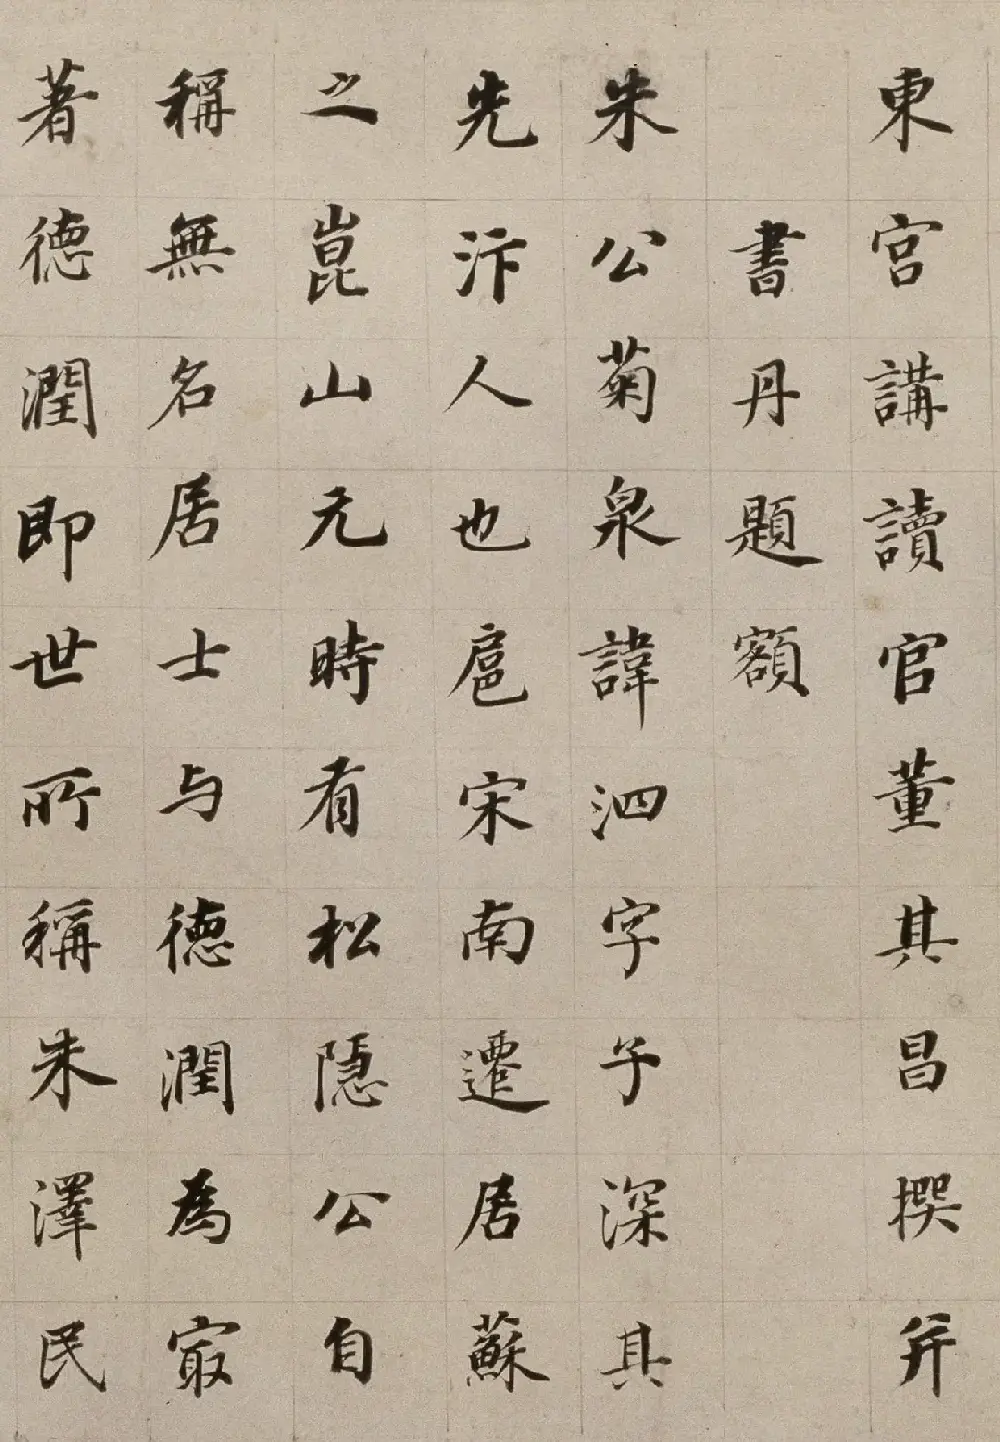 東宮講讀官董其昌撰并
書丹題額
朱公菊泉諱泗字子深其
先汴人也扈宋南遷居蘇
之崑山元時有松隱公自
稱無名居士与德潤為冣
著德潤即世所稱朱澤民